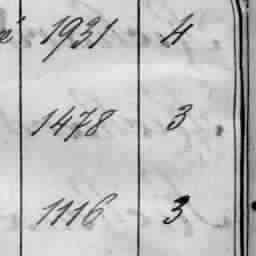 1931 4
1478 3
1116 3